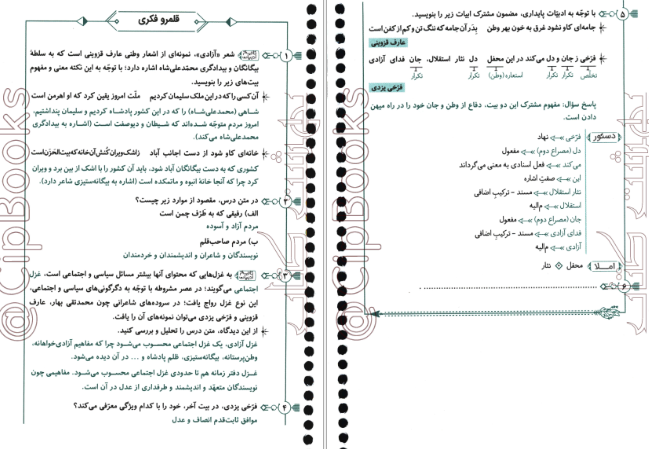 ۵ با توجّه به ادبیّات پایداری، مضمون مشترک ابیات زیر را بنویسید.
جامه‌ای کاو نشود غرق به خون بهر وطن بِدَر آن جامه که ننگ تن و کم از کفن است
عارف قزوینی
فرّخی ز جان و دل می‌کند در این محفل دل نثار استقلال، جان فدای آزادی
تخلّص تکرار تکرار استعاره (وطن) تکرار تکرار
فرّخی یزدی
پاسخ سؤال: مفهوم مشترک این دو بیت، دفاع از وطن و جان خود را در راه میهن
دادن است.
دستور فرّخی نهاد
دل (مصراع دوم) مفعول
می‌کند فعل اسنادی به معنی می‌گرداند
این صفت اشاره
نثار استقلال مسند - ترکیب اضافی
استقلال م‌الیه
جان (مصراع دوم) مفعول
فدای آزادی مسند - ترکیب اضافی
آزادی م‌الیه
املا محفل نثار
۶
قلمرو فکری
۱ شعر «آزادی»، نمونه‌ای از اشعار وطنی عارف قزوینی است که به سلطهٔ
بیگانگان و بیدادگری محمّدعلی‌شاه اشاره دارد؛ با توجّه به این نکته معنی و مفهوم
بیت‌های زیر را بنویسید.
آن کسی را که در این ملک سلیمان کردیم ملّت امروز یقین کرد که او اهرمن است
شاهی (محمدعلی‌شاه) را که در این کشور پادشاه کردیم و سلیمان پنداشتیم،
امروز مردم متوجّه شده‌اند که شیطان و دیوصفت است (اشاره به بیدادگری
محمدعلی‌شاه می‌کند).
خانه‌ای کاو شود از دست اجانب آباد ز اشک ویران کُنش آن خانه که بیت‌الحَزَن است
کشوری که به دست بیگانگان آباد شود، باید آن کشور را با اشک از بین برد و ویران
کرد چرا که آنجا خانهٔ انبوه و ماتمکده است (اشاره به بیگانه‌ستیزی شاعر دارد).
۲ در متن درس، مقصود از موارد زیر چیست؟
الف) رفیقی که به طَرْف چمن است
مردم آزاد و آسوده
ب) مردم صاحب‌قلم
نویسندگان و شاعران و اندیشمندان و خردمندان
۳ به غزل‌هایی که محتوای آنها بیشتر مسائل سیاسی و اجتماعی است، غزل
اجتماعی می‌گویند؛ در عصر مشروطه با توجّه به دگرگونی‌های سیاسی و اجتماعی،
این نوع غزل رواج یافت؛ در سروده‌های شاعرانی چون محمدتقی بهار، عارف
قزوینی و فرّخی یزدی می‌توان نمونه‌های آن را یافت.
از این دیدگاه، متن درس را تحلیل و بررسی کنید.
غزل آزادی، یک غزل اجتماعی محسوب می‌شود چرا که مفاهیم آزادی‌خواهانه،
وطن‌پرستانه، بیگانه‌ستیزی، ظلم پادشاه و ... در آن دیده می‌شود.
غزل دفتر زمانه هم تا حدودی غزل اجتماعی محسوب می‌شود. مفاهیمی چون
نویسندگان متعهّد و اندیشمند و طرفداری از عدل در آن است.
۴ فرّخی یزدی، در بیت آخر، خود را با کدام ویژگی معرّفی می‌کند؟
موافق ثابت‌قدم انصاف و عدل
@CipBooks
@CipBooks